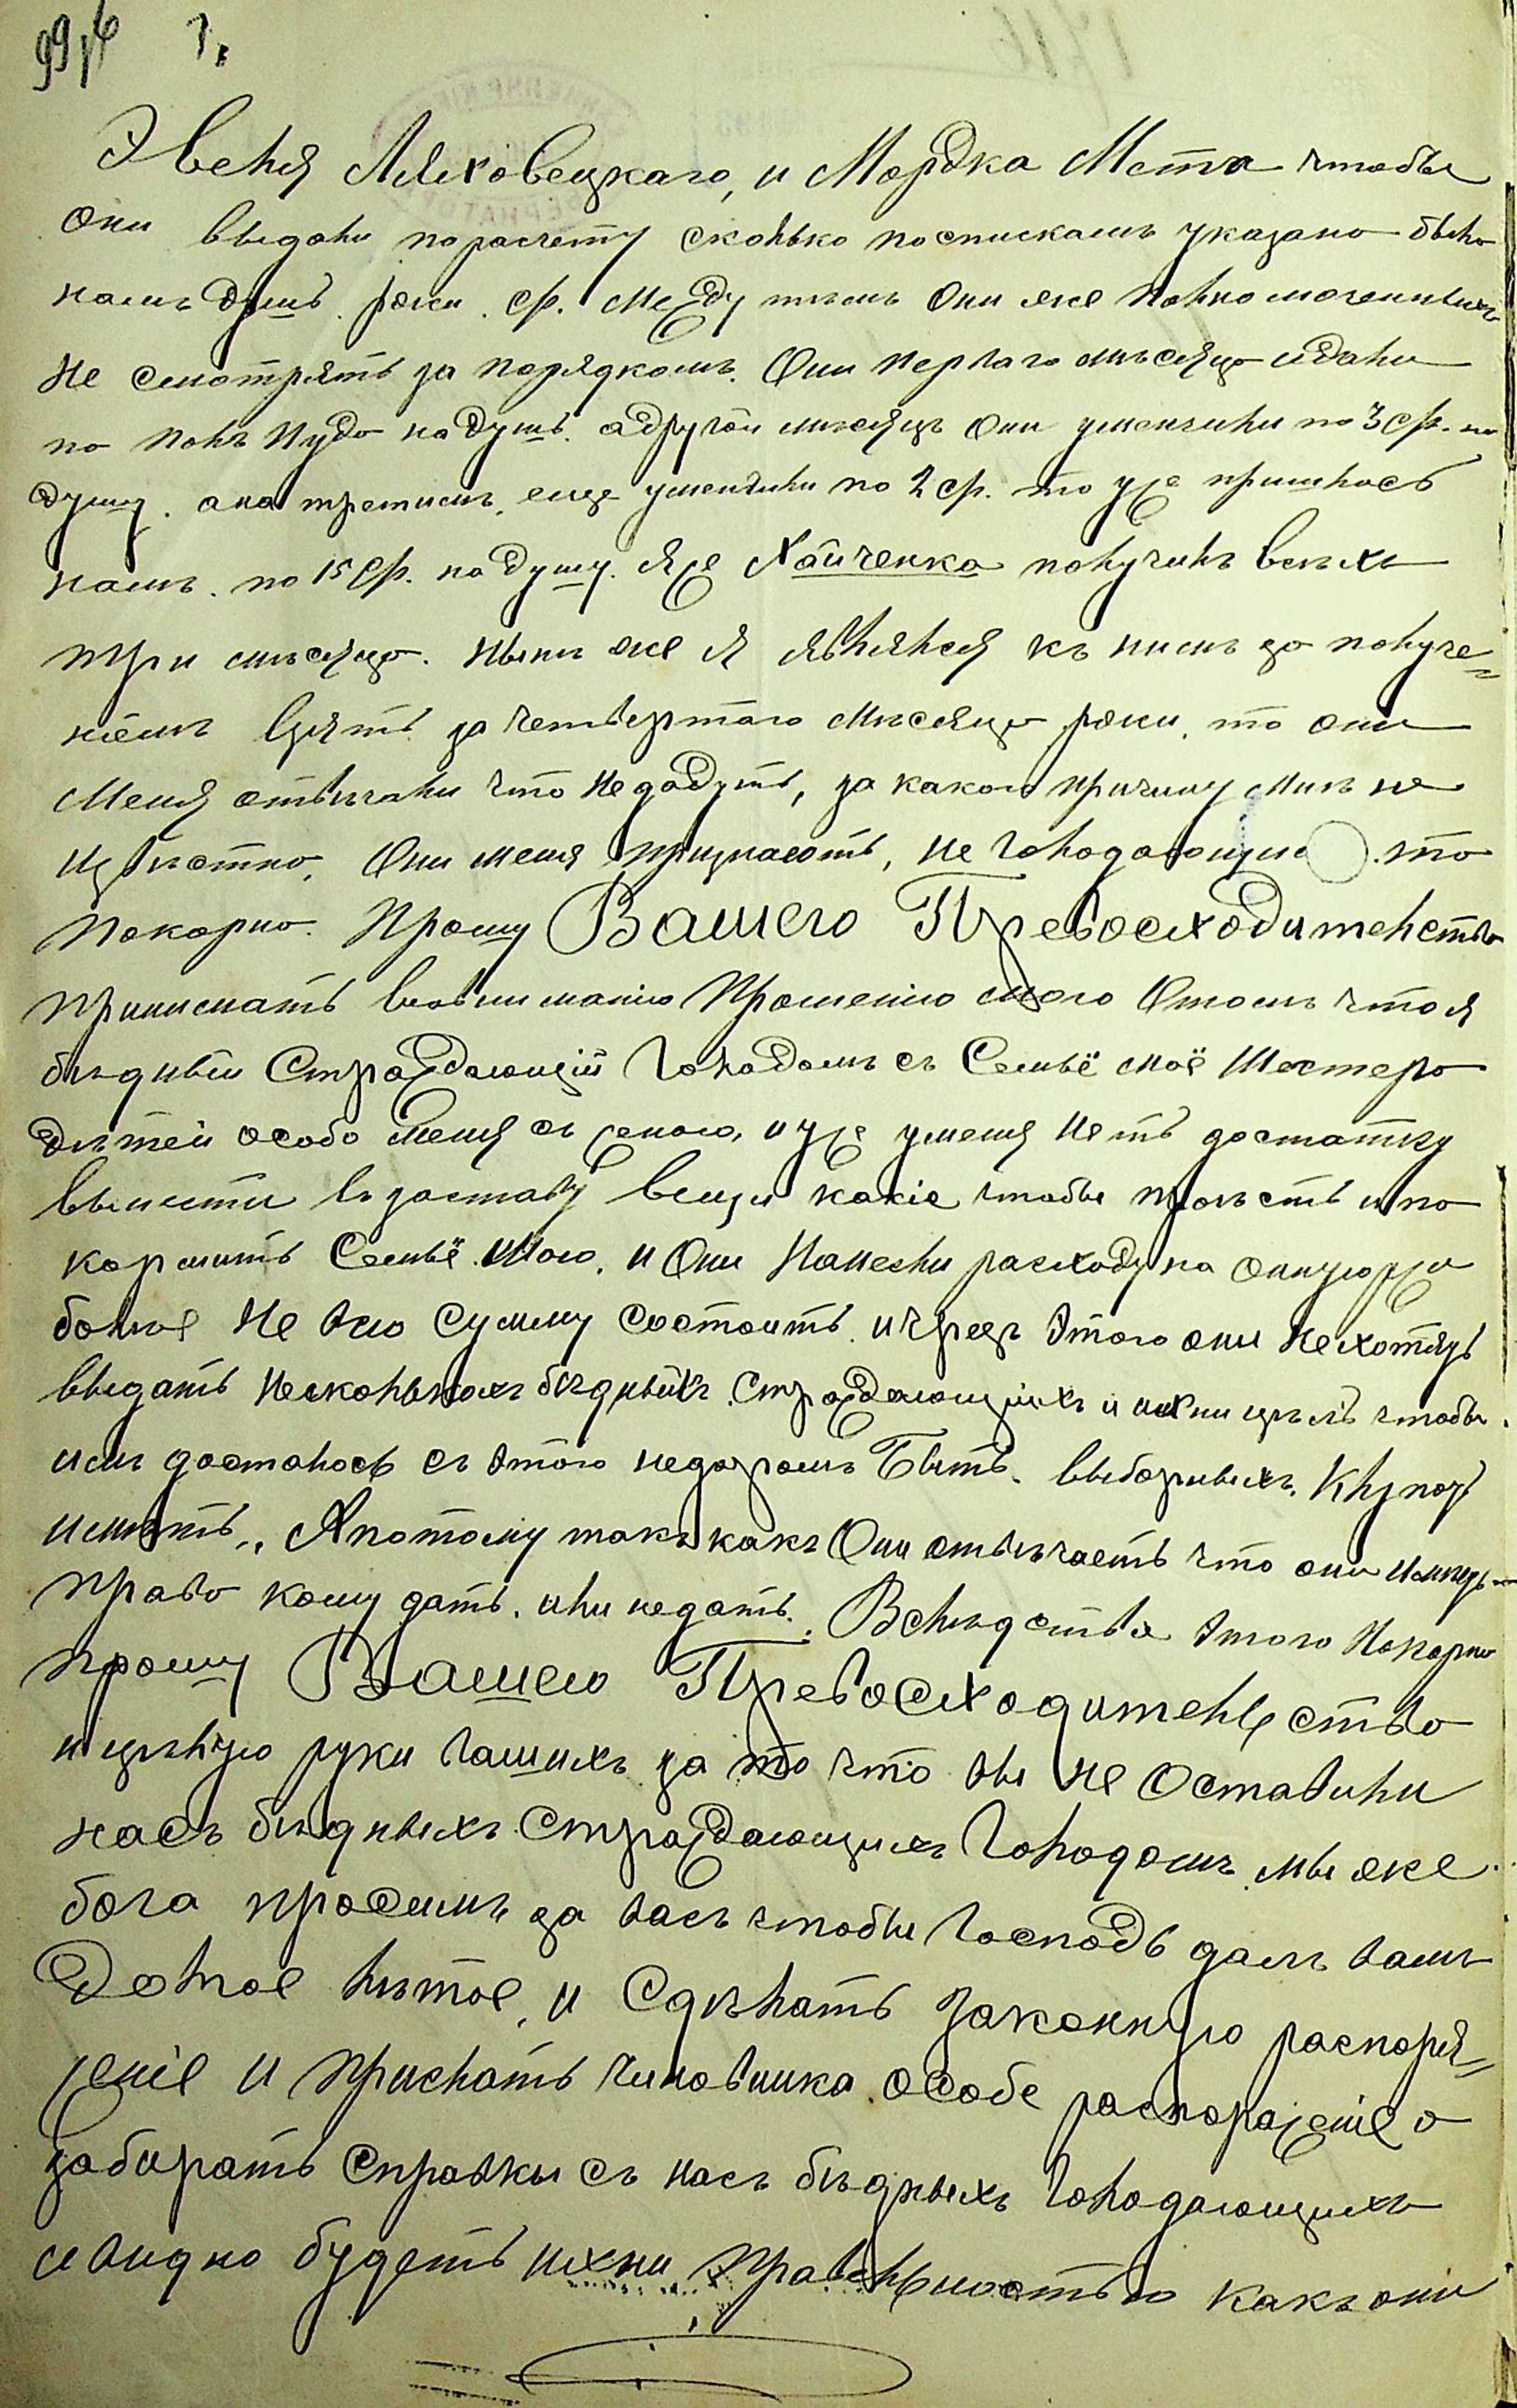 Эвеля Ляховецкаго, и Мордка Мета чтобы
они выдали по расчету сколько поспискамъ указано было
намъ душъ ржи. ср. Между темъ Они же полномоченныхъ
не смотрятъ за порядкомъ. Они перваго месяца идали
по полъ пудо на душъ. адругой месяцъ Они уменчили по 3 ср. на
душу. ана третимъ еще уменчили по 2 ср. то уже пришлось
намъ. по 15 ср. на душу. Яже Хайченка получилъ всехъ
три месяца. Ныне же я являлся къ нимъ за получе=
ніемъ взять за четвертаго Месяца ржи, то они
Меня отвечали что не дадутъ, за какою причину Мне не
известно, Они меня признаютъ, не голодающи то
покорно. Прошу Вашего Превосходительство
принимать вовниманію Прошенію моего Отомъ что я
бедный Страждающій голодомъ съ Семьё моё Шестеро
детей особо Меня съ женою, и уже уменя нетъ достатку
вынести въ заставу вещи какіе чтобы проестъ и по
кормить Семьё мою, и Они Нанесли расходу на
более Не всю сумму состоитъ и чрезъ этого они нехотятъ
выдать несколькохъ бедныхъ Страждающихъ и ихни целъ чтобы
имъ досталось съ этого недаромъ Бытъ. выборныхъ.
иметь., Апотому такъ какъ Они отвечаетъ что они имеютъ
право кому дать. или недать. Вследствіе этого Покорно
прошу Вашего Превосходительство
и целую руки вашихъ за то что вы не Оставили
насъ бедныхъ Страждающихъ голодомъ мы же
бога просимъ за васъ чтобы Господь далъ вамъ
Долгое летое, и Сделать законную распоря=
женіе и прислать чиновника особе распоражение о
забирать Справки съ насъ бедныхъ голодающихъ
и видно будетъ ихни правельностью какъ они